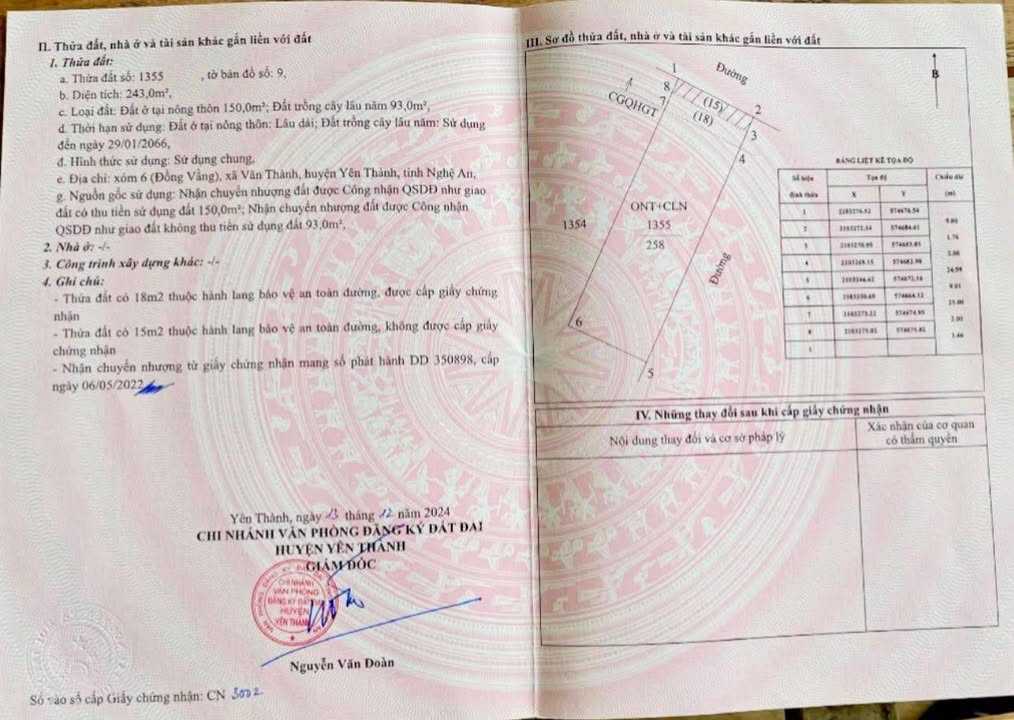 II. Thửa đất, nhà ở và tài sản khác gắn liền với đất
1. Thửa đất:
a. Thửa đất số: 1355 , tờ bản đồ số: 9,
b. Diện tích: 243,0m²,
c. Loại đất: Đất ở tại nông thôn 150,0m²; Đất trồng cây lâu năm 93,0m²,
d. Thời hạn sử dụng: Đất ở tại nông thôn: Lâu dài; Đất trồng cây lâu năm: Sử dụng
đến ngày 29/01/2066,
đ. Hình thức sử dụng: Sử dụng chung,
e. Địa chỉ: xóm 6 (Đồng Vảng), xã Văn Thành, huyện Yên Thành, tỉnh Nghệ An,
g. Nguồn gốc sử dụng: Nhận chuyển nhượng đất được Công nhận QSDĐ như giao
đất có thu tiền sử dụng đất 150,0m²; Nhận chuyển nhượng đất được Công nhận
QSDĐ như giao đất không thu tiền sử dụng đất 93,0m²,
2. Nhà ở: -/-
3. Công trình xây dựng khác: -/-
4. Ghi chú:
- Thửa đất có 18m2 thuộc hành lang bảo vệ an toàn đường, được cấp giấy chứng
nhận
- Thửa đất có 15m2 thuộc hành lang bảo vệ an toàn đường, không được cấp giấy
chứng nhận
- Nhận chuyển nhượng từ giấy chứng nhận mang số phát hành DD 350898, cấp
ngày 06/05/2022
Yên Thành, ngày 13 tháng 12 năm 2024
CHI NHÁNH VĂN PHÒNG ĐĂNG KÝ ĐẤT ĐAI
HUYỆN YÊN THÀNH
GIÁM ĐỐC
CHI NHÁNH
VĂN PHÒNG
ĐĂNG KÝ ĐẤT ĐAI
HUYỆN
YÊN THÀNH
Nguyễn Văn Đoàn
Số vào sổ cấp Giấy chứng nhận: CN 3002
III. Sơ đồ thửa đất, nhà ở và tài sản khác gắn liền với đất
B
Đường
1
8
7
CGQHGT
(15)
(18)
2
3
4
1354
ONT+CLN
1355
258
Đường
6
5
BẢNG LIỆT KÊ TỌA ĐỘ
Số hiệu
đỉnh thửa
Tọa độ
X
Y
Chiều dài
(m)
1
2
3
4
5
6
7
8
1
IV. Những thay đổi sau khi cấp giấy chứng nhận
Nội dung thay đổi và cơ sở pháp lý
Xác nhận của cơ quan
có thẩm quyền